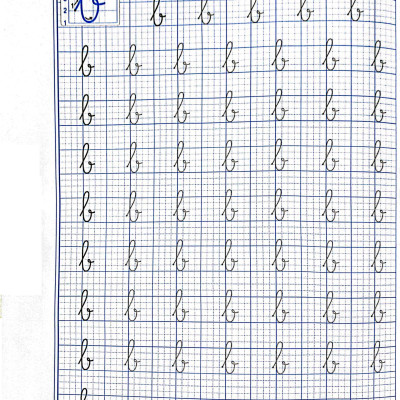 b b b b b b
b b b b b b b
b b b b b b b
b b b b b b b
b b b b b b b
b b b b b b b
b b b b b b b
b b b b b b b